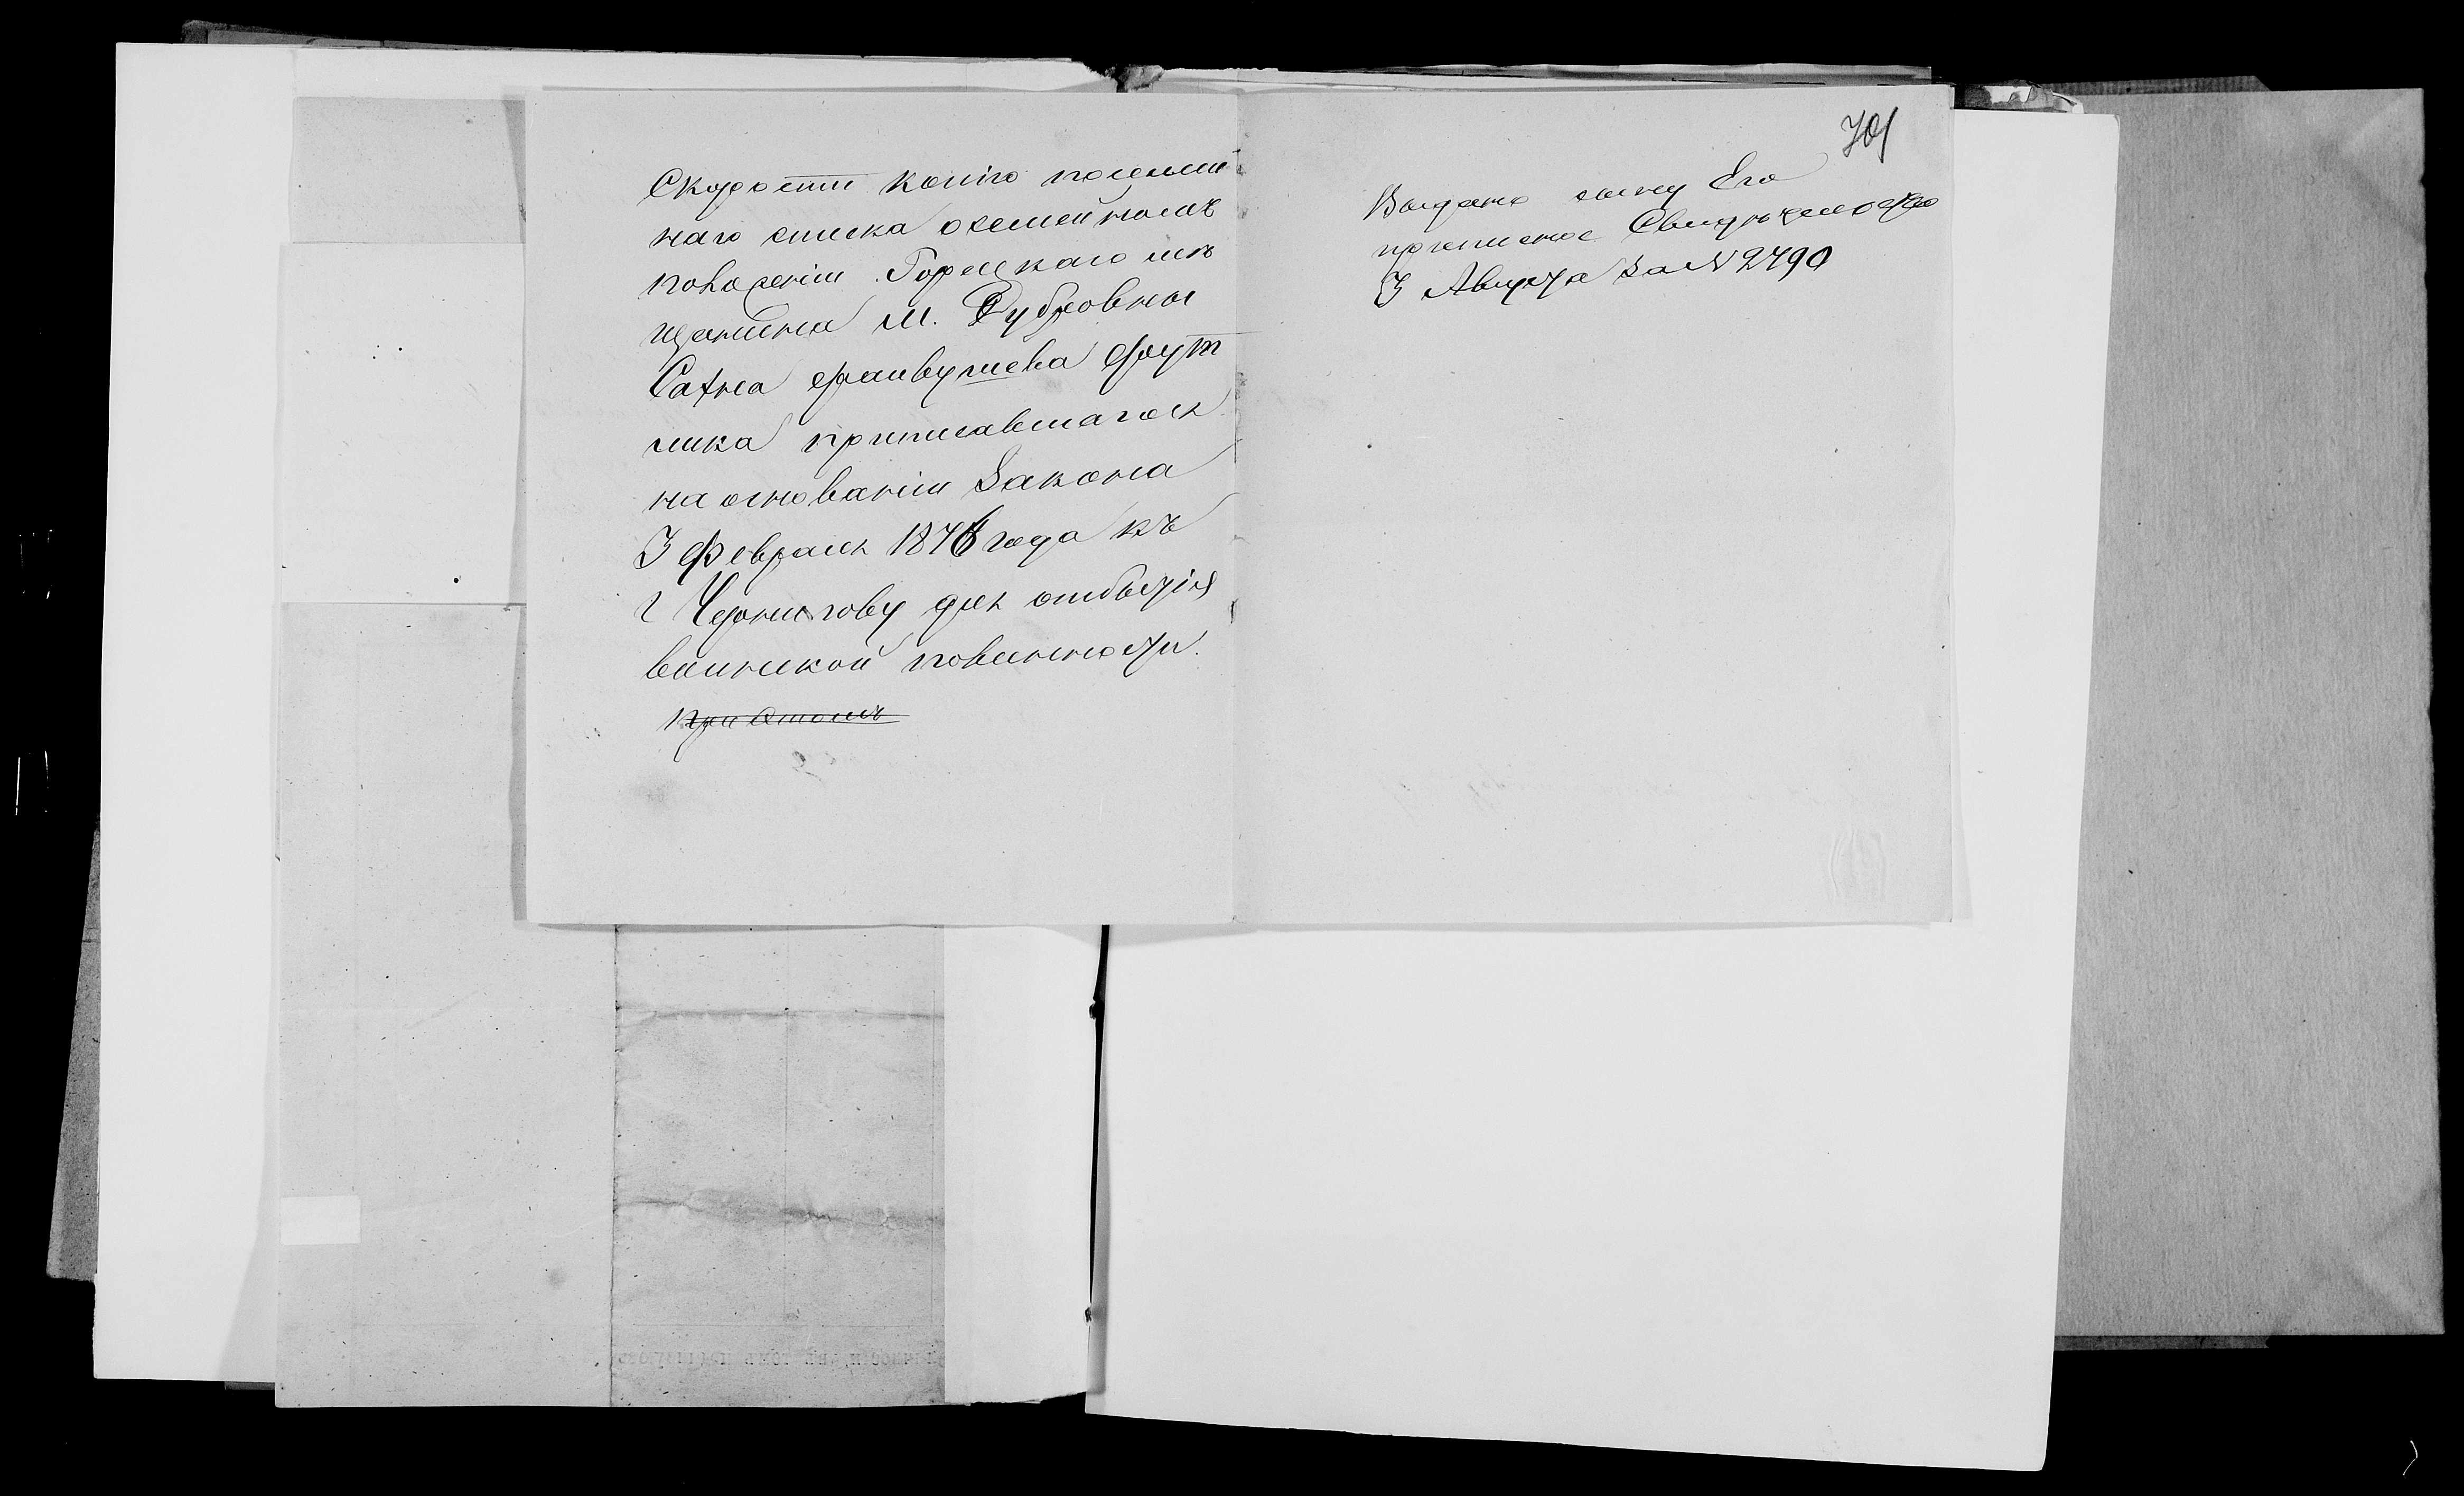 Скурости копію посемей-
наго списка о семейномъ
положеніи Горецкаго мѣ
щанина м. Дубровны
Сахна Файвушева Фрут
мика приписавшагося
на основаніи Закона
3 Февраля 1876 года къ
г Чернигову для отбытія
воинской повинности.
~~при этомъ~~
701
Выдано сыну Его
приписное Свидѣтельство
3 Августа за № 2490